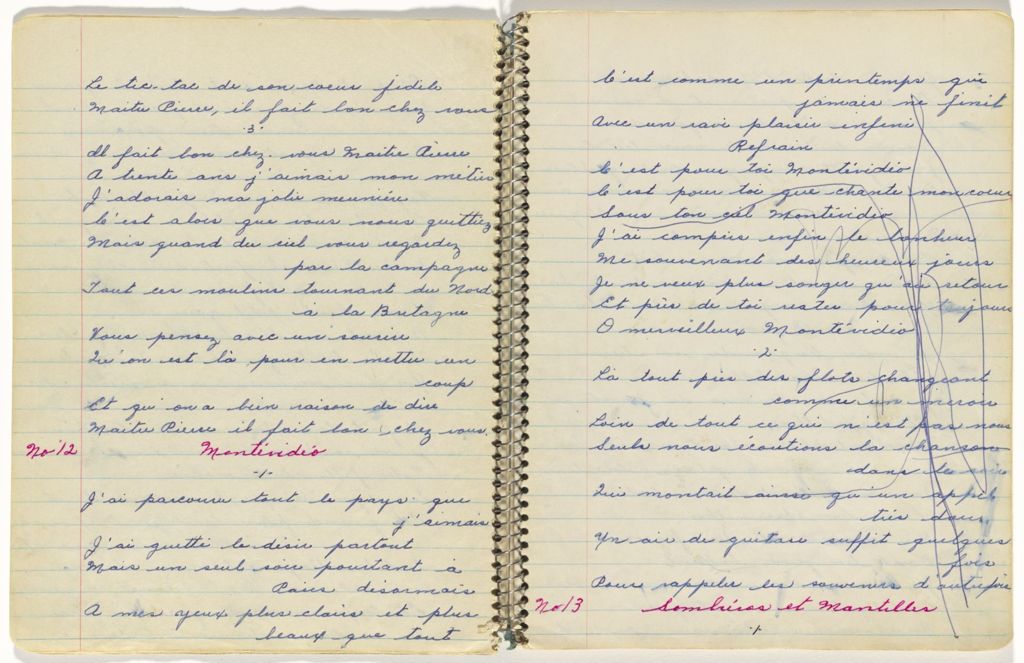 Le tic-tac de son coeur fidele
Maitre Pierre, il fait bon chez vous
3
Il fait bon chez vous Maitre Pierre
A trente ans j'aimais mon métier
J'adorais ma jolie meunière
C'est alors que vous nous quittiez
Mais quand du ciel vous regardez
par la campagne
Tout ces moulins tournant du Nord
à la Bretagne
Vous pensez avec un sourire
Qu'on est là pour en mettre un
coup
Et qu'on a bien raison de dire
Maitre Pierre il fait bon chez vous.
No 12 Montévidéo
-1-
J'ai parcouru tout le pays que
j'aimais
J'ai guetté le désir partout
Mais un seul soir pourtant à
Paris désormais
A mes yeux plus clairs et plus
beaux que tout
C'est comme un printemps qui
jamais ne finit
Avec un ravi plaisir infini
Refrain
C'est pour toi Montévidéo
C'est pour toi que chante mon coeur
Sous ton ciel Montévidéo
J'ai compris enfin le bonheur
Me souvenant des heureux jours
Je ne veux plus songer qu'au retour
Et près de toi rester pour toujours
O merveilleux Montévidéo
2
Là tout près des flots changeant
comme un miroir
Loin de tout ce qui n'est pas nous
Seuls nous écoutions la chanson
dans le soir
Qui montait ainsi qu'un appel
très doux
Un air de guitare suffit quelques
fois
Pour rappeler les souvenirs d'autrefois
No 13 Sombréros et Mantilles
1